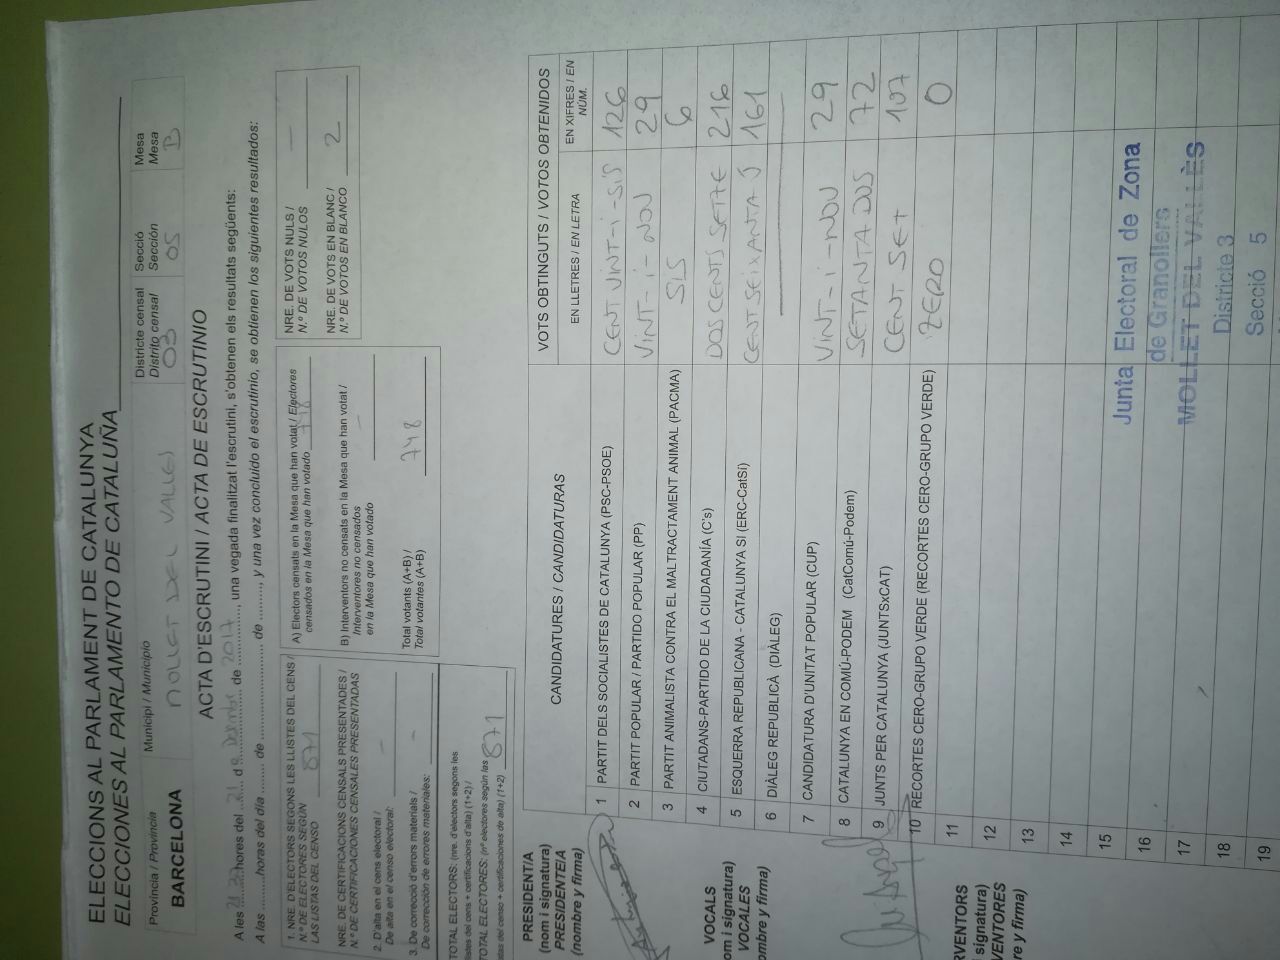 ELECCIONS AL PARLAMENT DE CATALUNYA
ELECCIONES AL PARLAMENTO DE CATALUÑA
Provincia / Provincia
BARCELONA
Municipi / Municipio
MOLLET DEL VALLES
Districte censal
Distrito censal
03
Secció
Sección
05
Mesa
Mesa
B
ACTA D'ESCRUTINI / ACTA DE ESCRUTINIO
A les ........ hores del 21 d ........ de 2017, una vegada finalitzat l'escrutini, s'obtenen els resultats següents:
A las ........ horas del día ........ de ........ de ........, y una vez concluido el escrutinio, se obtienen los siguientes resultados:
1. NRE. D'ELECTORS SEGONS LES LLISTES DEL CENS /
N.º DE ELECTORES SEGÚN
LAS LISTAS DEL CENSO
871
NRE. DE CERTIFICACIONS CENSALS PRESENTADES /
N.º DE CERTIFICACIONES CENSALES PRESENTADAS
2. D'alta en el cens electoral /
De alta en el censo electoral: –
3. De correcció d'errors materials /
De corrección de errores materiales: –
TOTAL ELECTORS: (nre. d'electors segons les
llistes del cens + certificacions d'alta) (1+2) /
TOTAL ELECTORES: (nº electores según las
listas del censo + certificaciones de alta) (1+2) 871
A) Electors censats en la Mesa que han votat / Electores
censados en la Mesa que han votado 748
B) Interventors no censats en la Mesa que han votat /
Interventores no censados
en la Mesa que han votado –
Total votants (A+B) /
Total votantes (A+B) 748
NRE. DE VOTS NULS /
N.º DE VOTOS NULOS –
NRE. DE VOTS EN BLANC /
N.º DE VOTOS EN BLANCO 2
PRESIDENT/A
(nom i signatura)
PRESIDENTE/A
(nombre y firma)
VOCALS
(nom i signatura)
VOCALES
(nombre y firma)
CANDIDATURES / CANDIDATURAS
VOTS OBTINGUTS / VOTOS OBTENIDOS
EN LLETRES / EN LETRA
EN XIFRES / EN NÚM.
1 PARTIT DELS SOCIALISTES DE CATALUNYA (PSC-PSOE) CENT VINT-I-SIS 126
2 PARTIT POPULAR / PARTIDO POPULAR (PP) VINT-I-NOU 29
3 PARTIT ANIMALISTA CONTRA EL MALTRACTAMENT ANIMAL (PACMA) SIS 6
4 CIUTADANS-PARTIDO DE LA CIUDADANÍA (C's) DOS CENTS SETZE 216
5 ESQUERRA REPUBLICANA - CATALUNYA SI (ERC-CatSí) CENT SEIXANTA 161
6 DIÀLEG REPUBLICÀ (DIÀLEG)
7 CANDIDATURA D'UNITAT POPULAR (CUP) VINT-I-NOU 29
8 CATALUNYA EN COMÚ-PODEM (CatComú-Podem) SETANTA DOS 72
9 JUNTS PER CATALUNYA (JUNTSxCAT) CENT SET 107
10 RECORTES CERO-GRUPO VERDE (RECORTES CERO-GRUPO VERDE) ZERO 0
11
12
13
14
15
16
17
18
19
Junta Electoral de Zona
de Granollers
MOLLET DEL VALLÈS
Districte 3
Secció 5